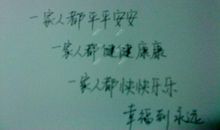 一家人都平平安安
一家人都健健康康
一家人都快快乐乐
幸福到永远